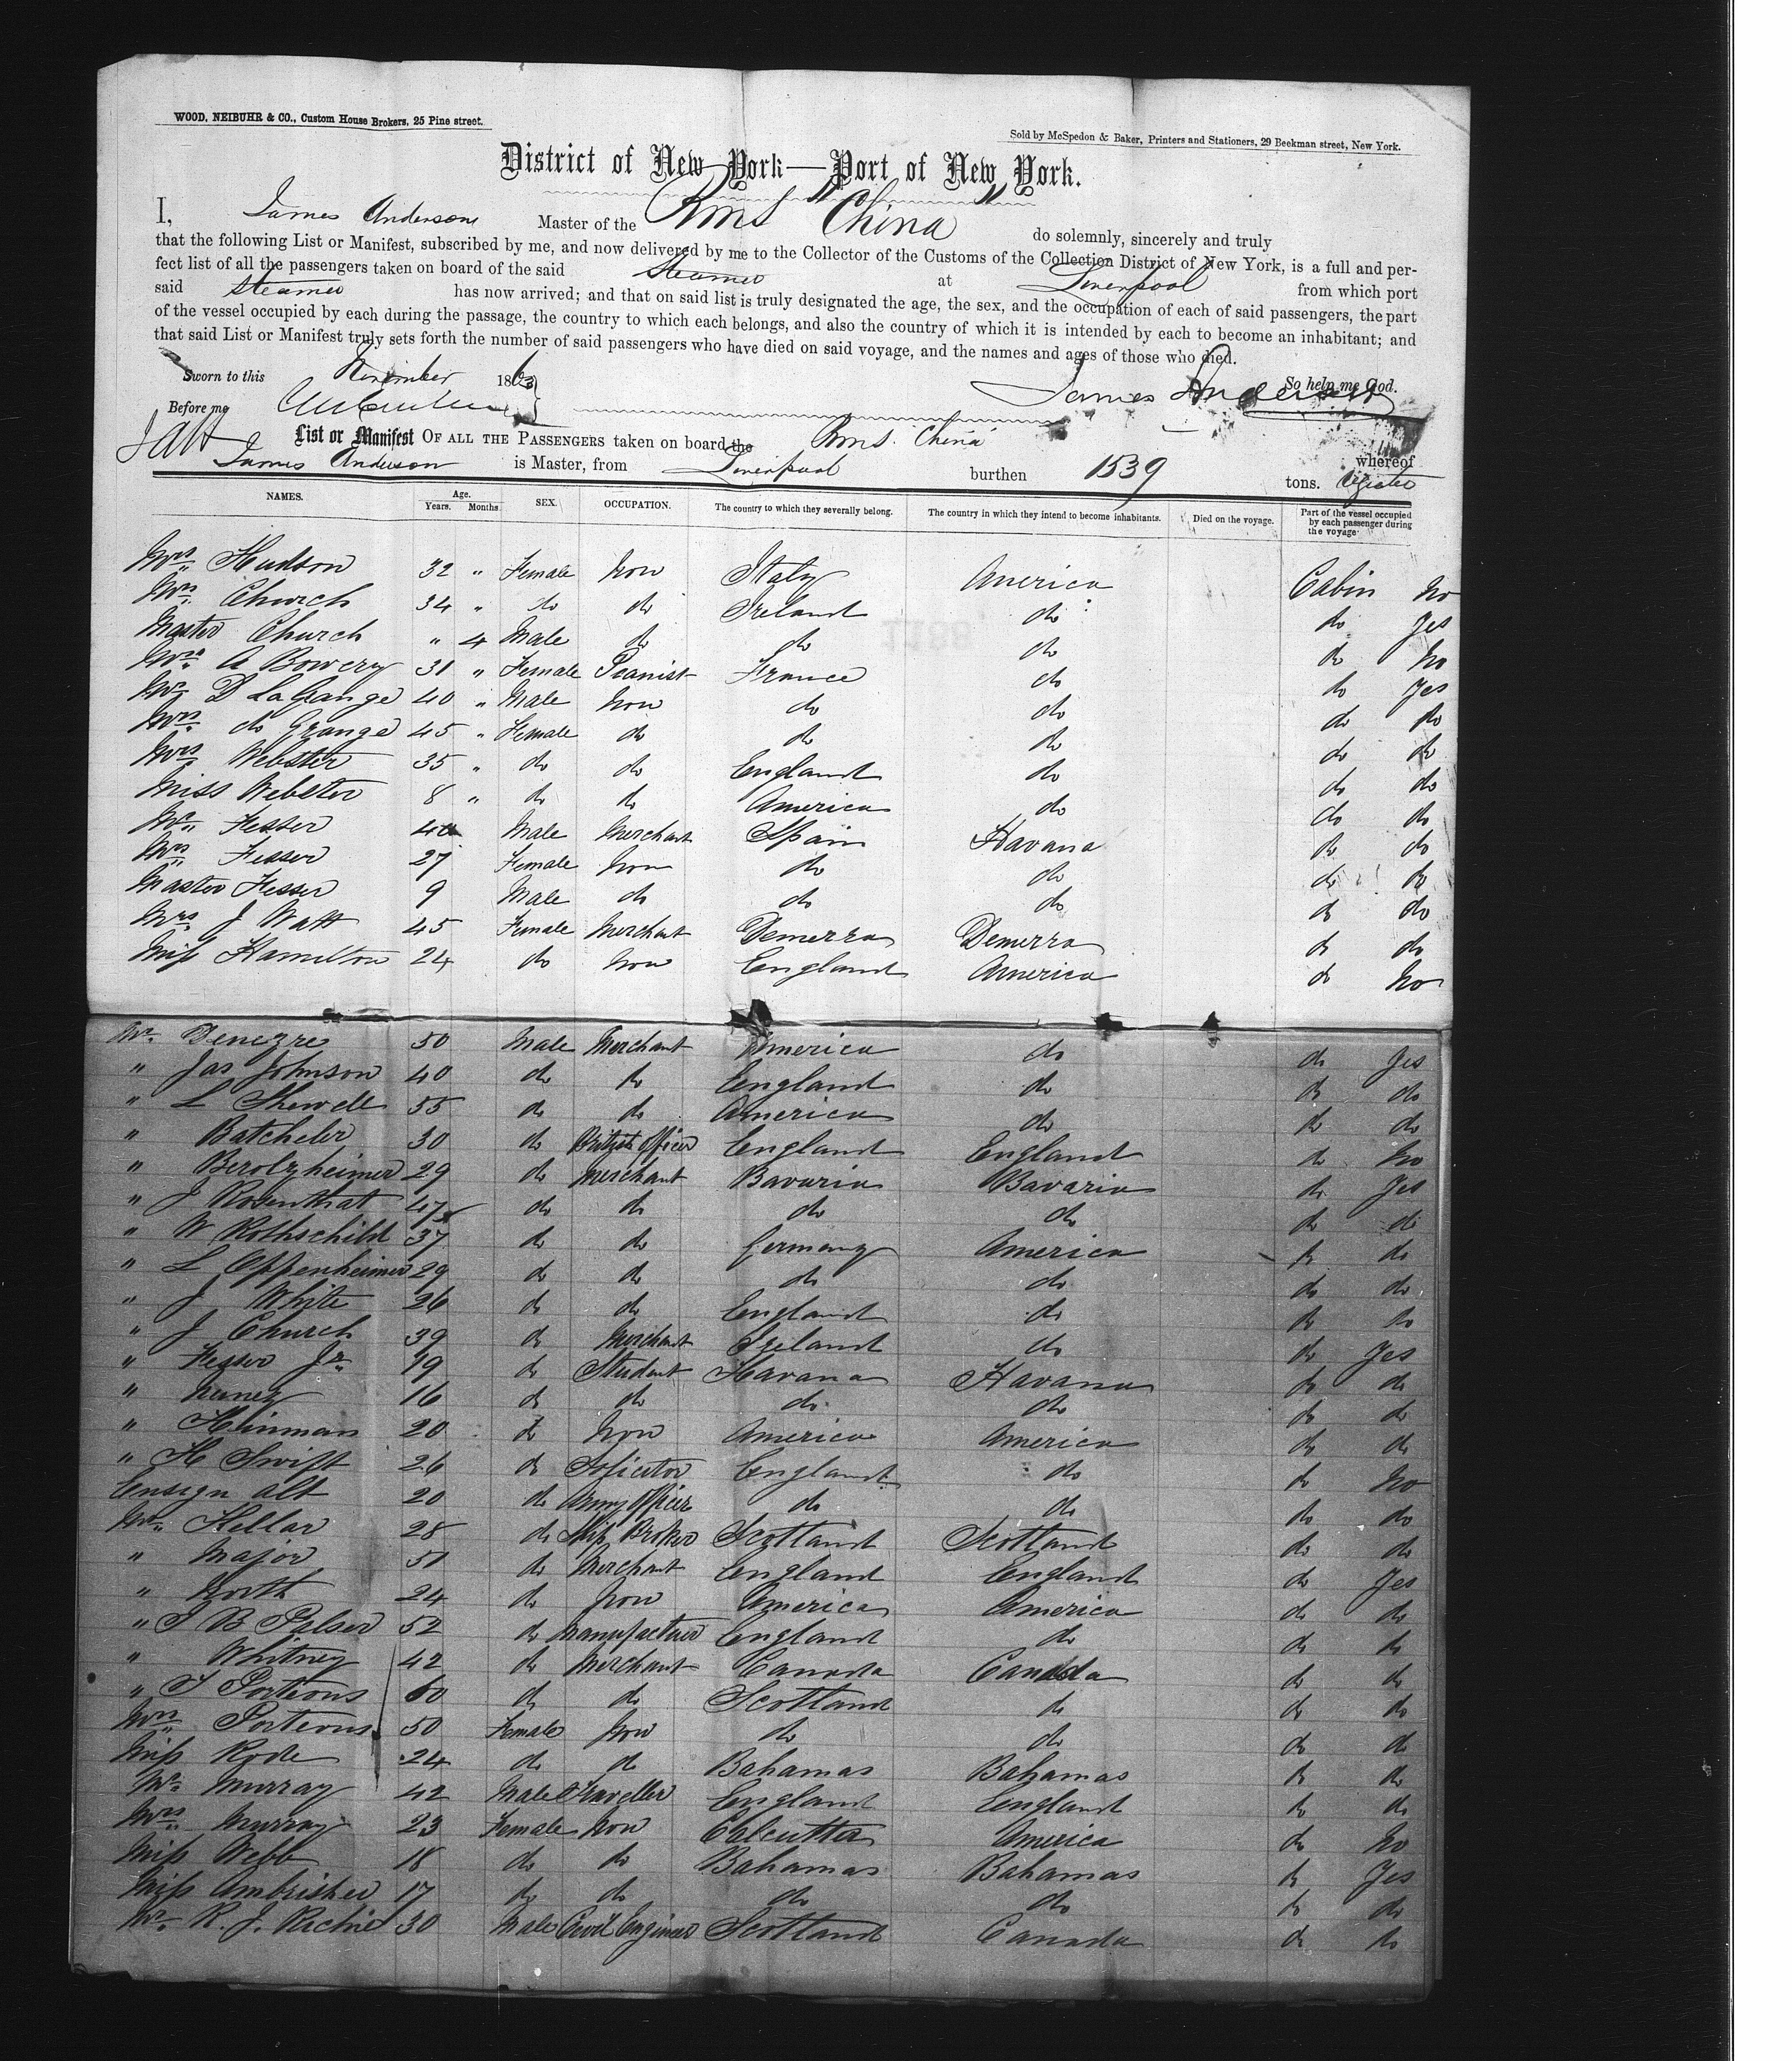 WOOD, NEIBUHR & CO., Custom House Brokers, 25 Pine street.
Sold by McSpedon & Baker, Printers and Stationers, 29 Beekman street, New York.
District of New York—Port of New York.
I, James Anderson Master of the Rms "China" do solemnly, sincerely and truly
that the following List or Manifest, subscribed by me, and now delivered by me to the Collector of the Customs of the Collection District of New York, is a full and per-
fect list of all the passengers taken on board of the said Steamer at Liverpool from which port
said Steamer has now arrived; and that on said list is truly designated the age, the sex, and the occupation of each of said passengers, the part
of the vessel occupied by each during the passage, the country to which each belongs, and also the country of which it is intended by each to become an inhabitant; and
that said List or Manifest truly sets forth the number of said passengers who have died on said voyage, and the names and ages of those who died.
Sworn to this November 1863 So help me God.
Before me James Anderson
List or Manifest OF ALL THE PASSENGERS taken on board the Rms. China whereof
James Anderson is Master, from Liverpool burthen 1539 tons.
NAMES. Age. Years. Months. SEX. OCCUPATION. The country to which they severally belong. The country in which they intend to become inhabitants. Died on the voyage. Part of the vessel occupied by each passenger during the voyage
Mrs. Hudson 32 " Female Non Italy America Cabin No
Mrs. Church 34 " do do Ireland do do Yes
Master Church " 4 Male do do do do No
A Bowery 31 " Female Peanist France do do Yes
Mr D LaGange 40 " Male Non do do do do
Mrs. de Grange 45 " Female do do do do do
Mrs Webster 35 " do do England do do do
Miss Webster 8 " do do America do do do
Mr. Fesser Male Merchant Spain Havana do do
Mrs Fesser 27 Female Non do do do do
Master Fesser 9 Male do do do do do
Mrs J Watt 45 Female Merchant Demerra Demerra do do
Miss Hamilton 24 do Non England America do No
Mr. Denegre 50 Male Merchant America do do Yes
" Jas Johnson 40 do do England do do do
" L Shewell 55 do do America do do do
" Batcheler 30 do British officer England England do No
" Berolzheimer 29 do Merchant Bavaria Bavaria do Yes
" J Rosenthat 47 do do do do do do
" W Rothschild 37 do do Germany America do do
" L Oppenheimer 29 do do do do do do
" J White 26 do do England do do do
" J Church 39 do Merchant Ireland do do Yes
" Fesser Jr. 19 do Student Havana Havana do do
" Nunez 16 do do do do do do
" Hinman 20 do Non America America do do
" H Swift 26 do Solicitor England do do No
Ensign Alt 20 do Army Officer do do do do
Mr. Kellar 28 do Ship Broker Scotland Scotland do do
" Major 51 do Merchant England England do Yes
" North 24 do Non America America do do
" B Palser 52 do Manufacturer England do do do
" Whitney 42 do Merchant Canada Canada do do
" Porteous 60 do do Scotland do do do
Mrs. Porteous 50 Female Non do do do do
Miss Rode 24 do do Bahamas Bahamas do do
Mr. Murray 42 Male Traveller England England do do
Mrs. Murray 23 Female Non Calcutta America do No
Miss Webb 18 do do Bahamas Bahamas do Yes
Miss Ambrister 17 do do do do do do
Mr. R. J. Richie 30 Male Civil Engineer Scotland Canada do do